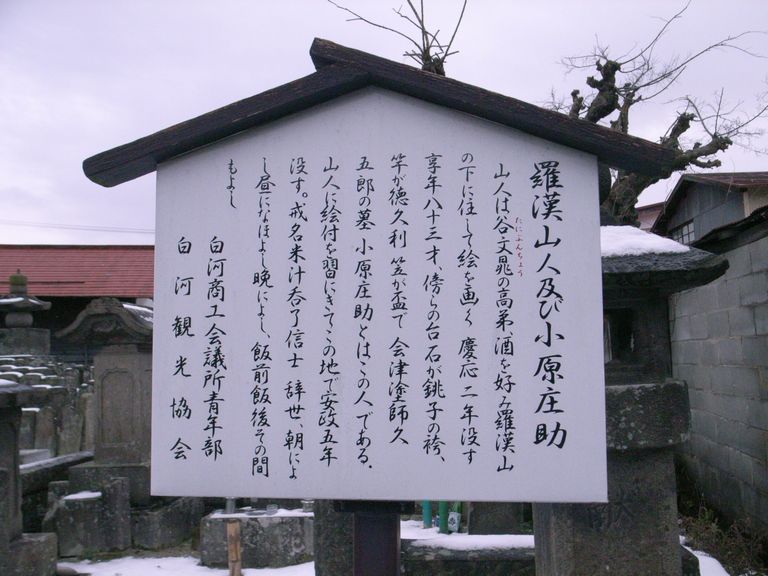 羅漢山人及び小原庄助
山人は谷文晁の高弟、酒を好み羅漢山
たにぶんちょう
の下に住して絵を画く 慶応二年没す
享年八十三才、傍らの台石が銚子の袴、
竿が徳久利 笠が盃で 会津塗師久
五郎の墓 小原庄助とはこの人である.
山人に絵付を習にきてこの地で安政五年
没す。戒名米汁呑了信士 辞世、朝によ
し昼になほよし晩によし、飯前飯後その間
もよし
白河商工会議所青年部
白河観光協会